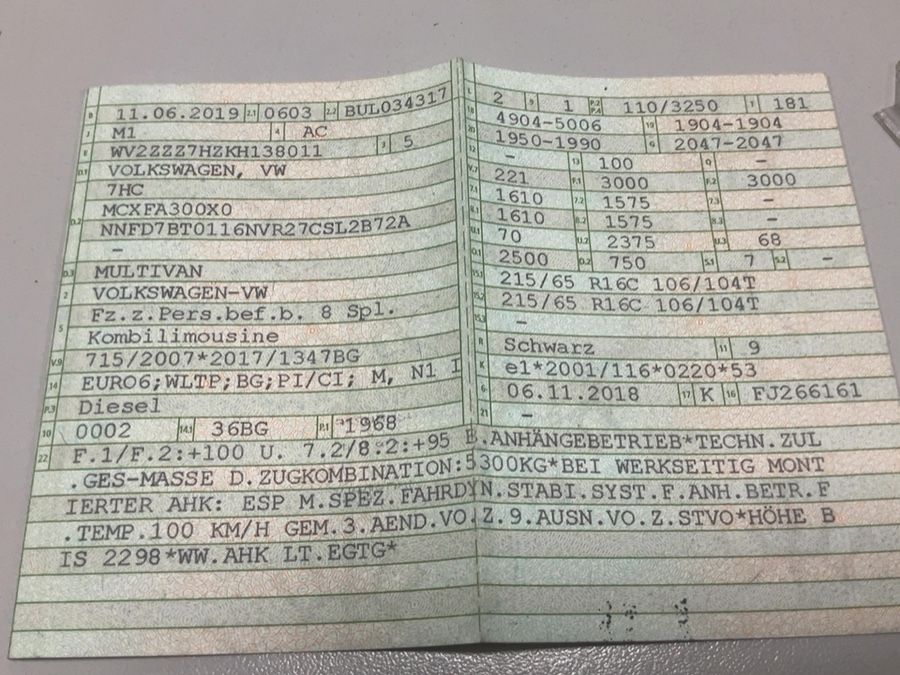 B 11.06.2019 2.1 0603 2.2 BUL034317
J M1 4 AC
E WV2ZZZ7HZKH138011 3 5
D.1 VOLKSWAGEN, VW
7HC
D.2 MCXFA300X0
NNFD7BT0116NVR27CSL2B72A
–
D.3 MULTIVAN
2 VOLKSWAGEN-VW
5 Fz.z.Pers.bef.b. 8 Spl.
Kombilimousine
V.9 715/2007*2017/1347BG
14 EURO6;WLTP;BG;PI/CI; M, N1 I
P.3 Diesel
10 0002 14.1 36BG P.1 1968
L 2 9 1 P.2 P.4 110/3250 T 181
18 4904-5006 19 1904-1904
20 1950-1990 G 2047-2047
12 – 13 100 Q –
V.7 221 F.1 3000 F.2 3000
7.1 1610 7.2 1575 7.3 –
8.1 1610 8.2 1575 8.3 –
U.1 70 U.2 2375 U.3 68
O.1 2500 O.2 750 S.1 7 S.2 –
15.1 215/65 R16C 106/104T
15.2 215/65 R16C 106/104T
15.3 –
R Schwarz 11 9
K e1*2001/116*0220*53
6 06.11.2018 17 K 16 FJ266161
21 –
22 F.1/F.2:+100 U. 7.2/8.2:+95 B.ANHÄNGEBETRIEB*TECHN.ZUL
.GES-MASSE D.ZUGKOMBINATION:5300KG*BEI WERKSEITIG MONT
IERTER AHK: ESP M.SPEZ.FAHRDYN.STABI.SYST.F.ANH.BETR.F
.TEMP.100 KM/H GEM.3.AEND.VO.Z.9.AUSN.VO.Z.STVO*HÖHE B
IS 2298*WW.AHK LT.EGTG*